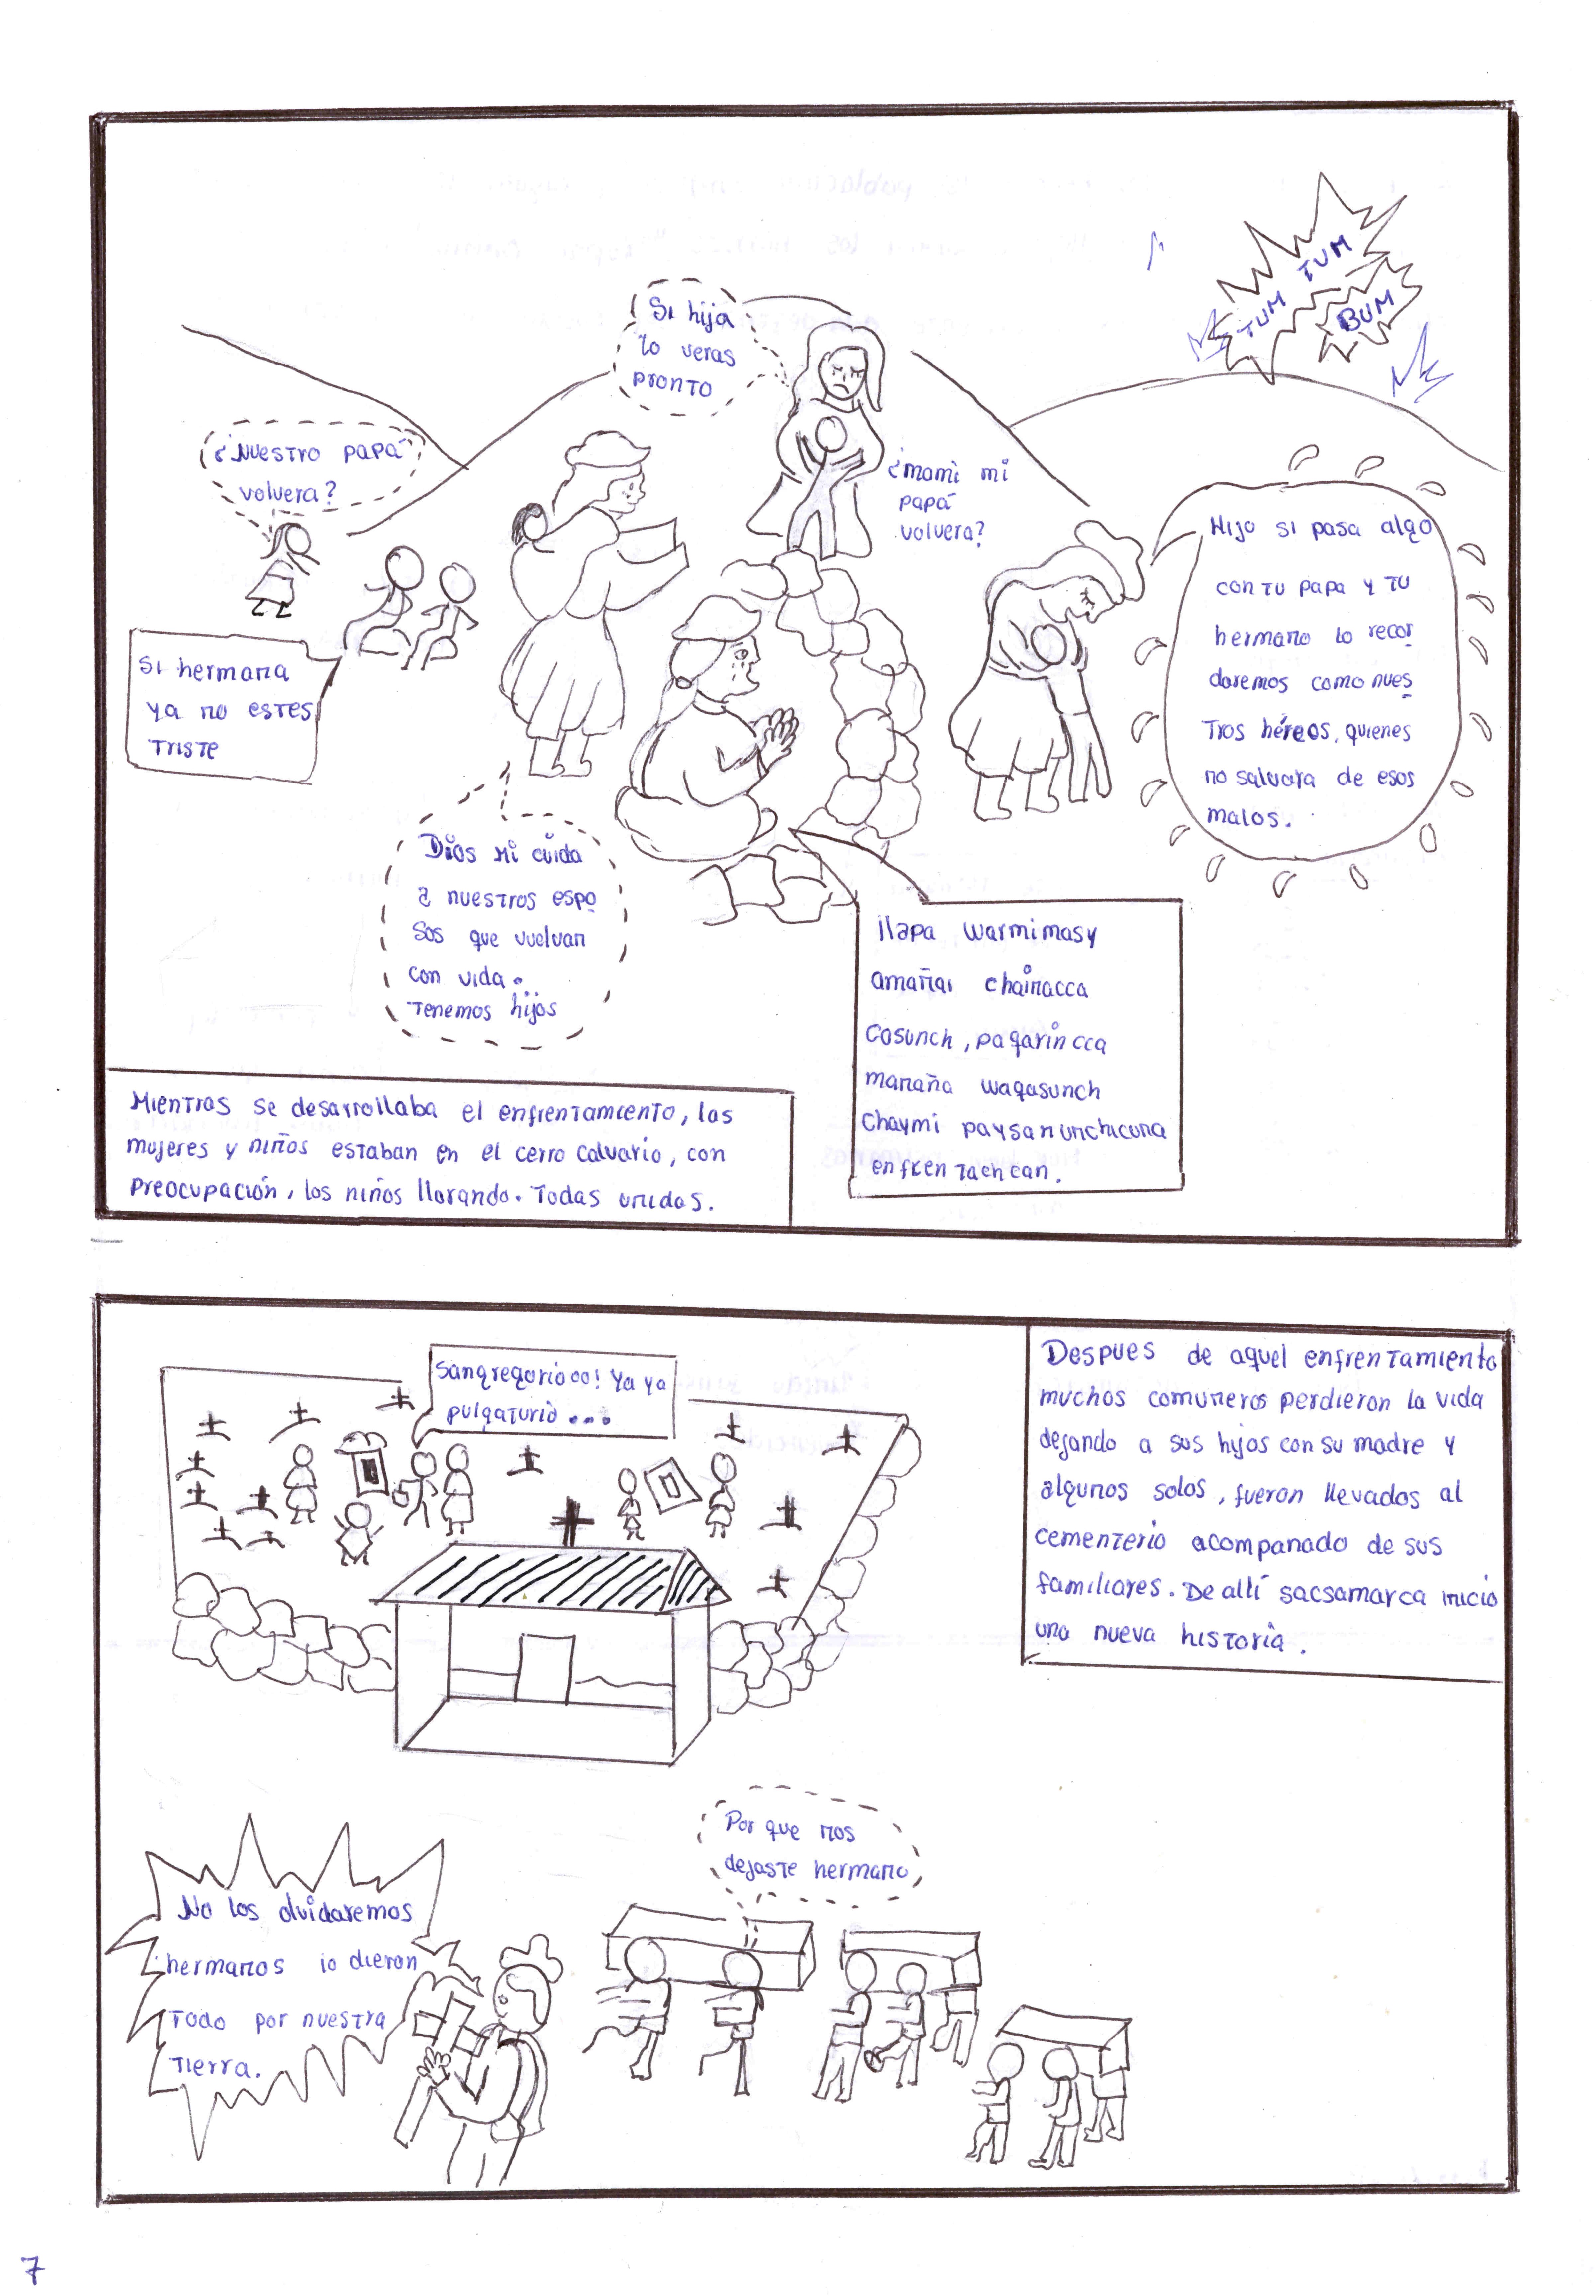 TUM TUM
BUM
Si hija
lo veras
pronto
¿Nuestro papá
volvera?
¿mami mi
papá
volvera?
Hijo si pasa algo
con tu papa y tu
hermano lo recor
daremos como nues
Tros héreos, quienes
no salvara de esos
malos.
Si hermana
ya no estes
Triste
Dios mi cuida
a nuestros espo
sos que vuelvan
con vida.
Tenemos hijos
llapa warmimasy
amañai chainacca
cosunch, paqarincca
manaña waqasunch
chaymi paysanunchicuna
enfrentachcan.
Mientras se desarrollaba el enfrentamiento, las
mujeres y niños estaban en el cerro calvario, con
preocupación, los niños llorando. Todas unidas.
Sangregoriooo! Ya ya
pulgaturio...
Despues de aquel enfrentamiento
muchos comuneros perdieron la vida
dejando a sus hijos con su madre y
algunos solos, fueron llevados al
cementerio acompanado de sus
familiares. De allí sacsamarca inicio
una nueva historia.
Por que nos
dejaste hermano
No los olvidaremos
hermanos lo dieron
Todo por nuestra
Tierra.
7